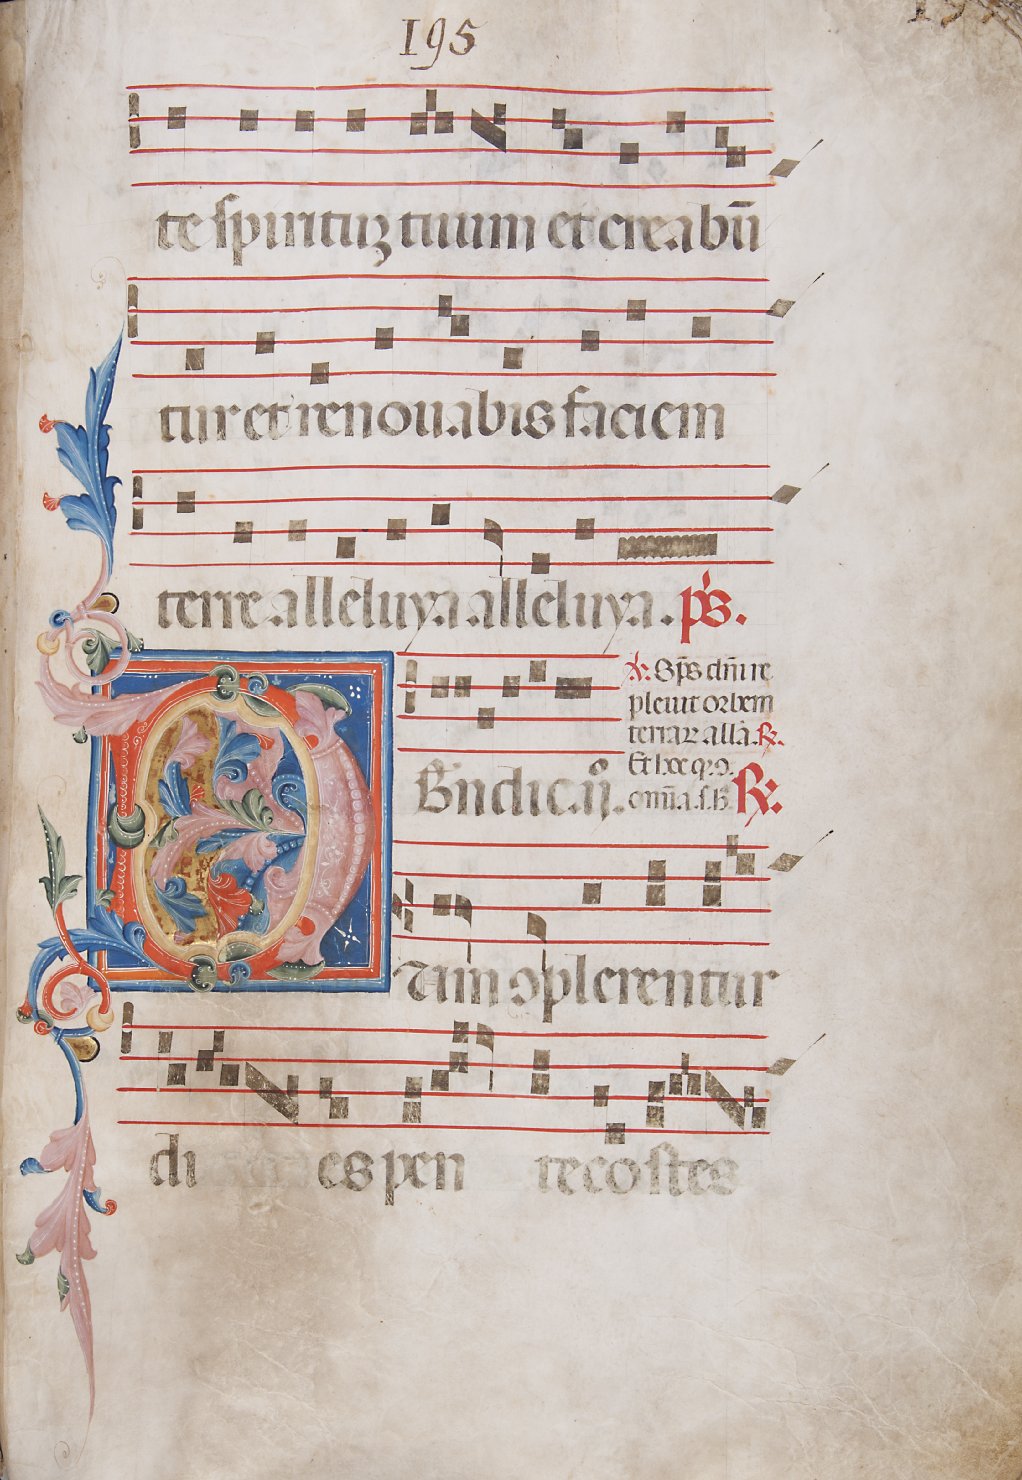 195
te spirituꝫ tuum et creabū
tur et renouabis faciem
terre alleluya alleluya. ps.
℣. Sp̄s dn̄i re
pleuit orbem
terraꝝ all̄a. ℟.
Et hoc q ꝯ
Bn̄dic.
omīa. ℟.
Dum ꝯplerentur
di es pen tecostes